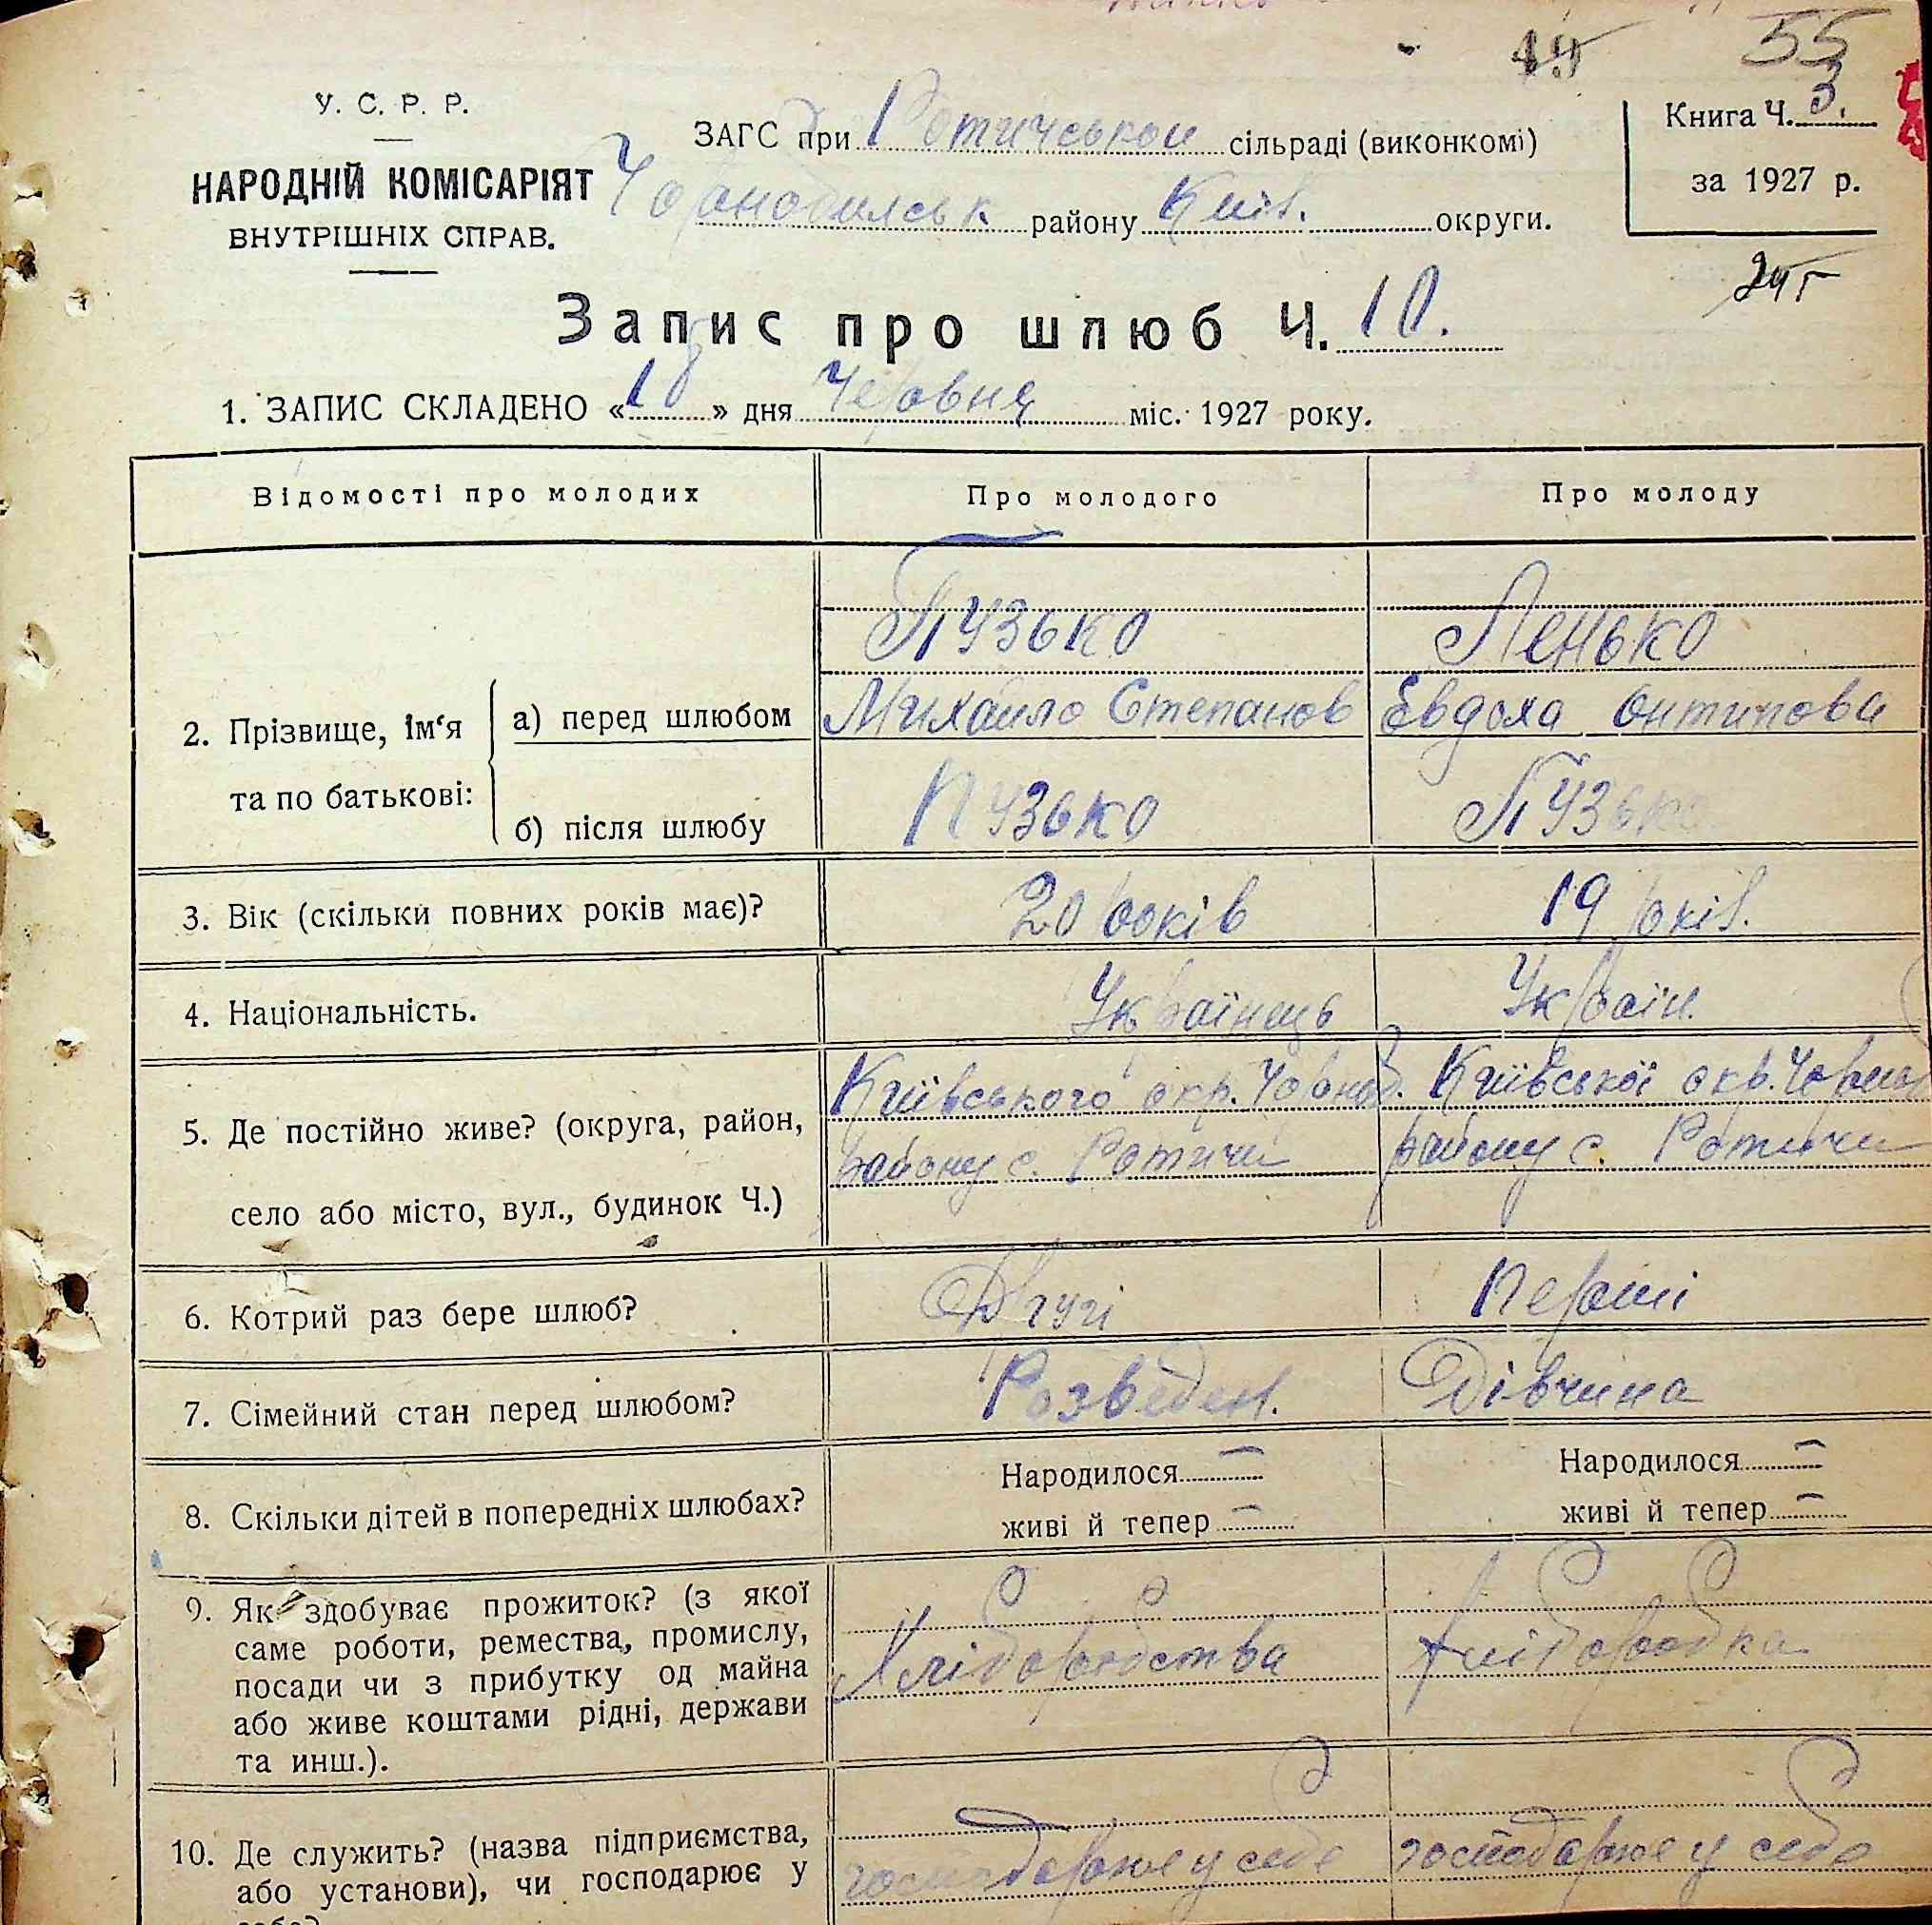 55
У. С. Р. Р.
НАРОДНІЙ КОМІСАРІЯТ
ВНУТРІШНІХ СПРАВ.
ЗАГС при Ротичськой сільраді (виконкомі)
Чорнобилськ району Київ. округи.
Книга Ч. 3.
за 1927 р.
Запис про шлюб Ч. 10.
1. ЗАПИС СКЛАДЕНО «18» дня Червня міс. 1927 року.
Відомості про молодих
Про молодого
Про молоду
2. Прізвище, ім‘я та по батькові:
а) перед шлюбом
Пузько
Михайло Степанов
Ленько
Евдоха Онтипова
б) після шлюбу
Пузько
Пузько
3. Вік (скільки повних років має)?
20 років
19 років.
4. Національність.
Українець
Україн.
5. Де постійно живе? (округа, район,
село або місто, вул., будинок Ч.)
Київського окр. Чорноб.
району с. Ротичи
Київської окр. Чорноб
району с. Ротичи
6. Котрий раз бере шлюб?
Другі
Перші
7. Сімейний стан перед шлюбом?
Розведен.
Дівчина
8. Скільки дітей в попередніх шлюбах?
Народилося —
живі й тепер —
Народилося —
живі й тепер —
9. Як здобуває прожиток? (з якої
саме роботи, ремества, промислу,
посади чи з прибутку од майна
або живе коштами рідні, держави
та инш.).
Хліборобства
Хліборобка
10. Де служить? (назва підприємства,
або установи), чи господарює у
себе?
господарює у себе
господарює у себе